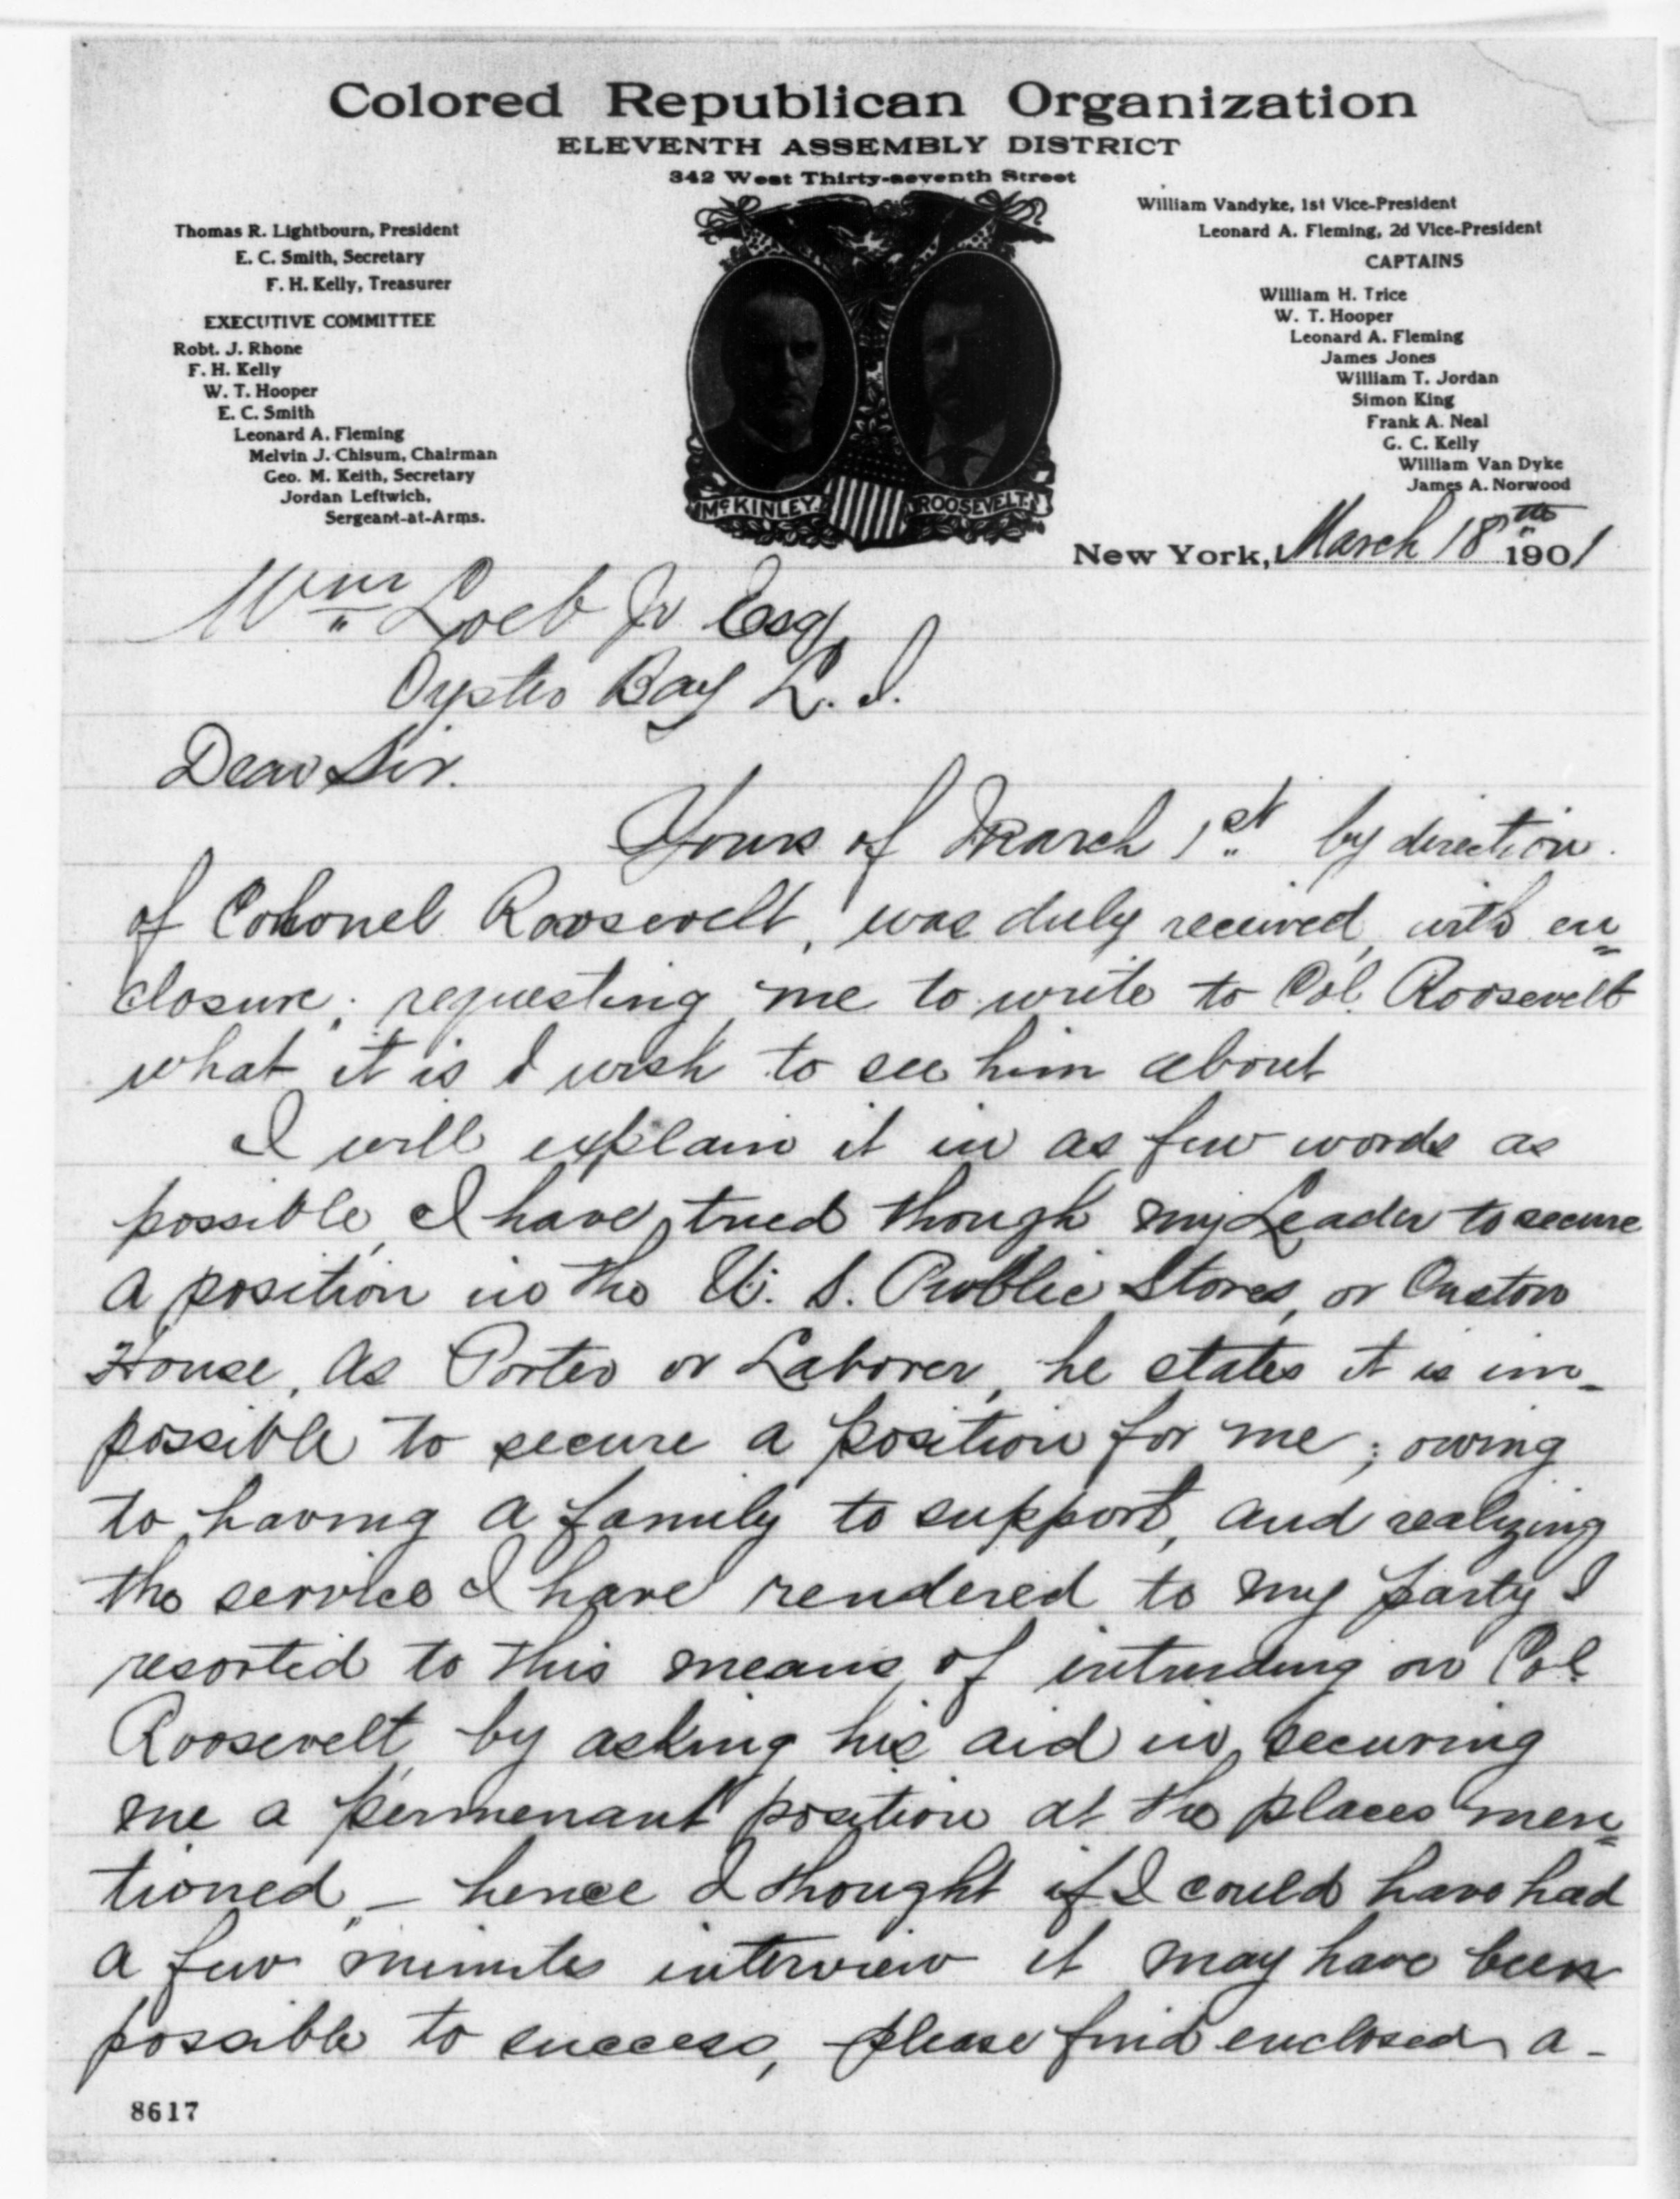 Colored Republican Organization
ELEVENTH ASSEMBLY DISTRICT
342 West Thirty-seventh Street
Thomas R. Lightbourn, President
E. C. Smith, Secretary
F. H. Kelly, Treasurer
EXECUTIVE COMMITTEE
Robt. J. Rhone
F. H. Kelly
W. T. Hooper
E. C. Smith
Leonard A. Fleming
Melvin J. Chisum, Chairman
Geo. M. Keith, Secretary
Jordan Leftwich,
Sergeant-at-Arms.
McKINLEY.
ROOSEVELT.
William Vandyke, 1st Vice-President
Leonard A. Fleming, 2d Vice-President
CAPTAINS
William H. Trice
W. T. Hooper
Leonard A. Fleming
James Jones
William T. Jordan
Simon King
Frank A. Neal
G. C. Kelly
William Van Dyke
James A. Norwood
New York, March 18th 1901
Wm Loeb Jr Esq,
Oyster Bay L. I.
Dear Sir.
Yours of March 1st by direction
of Colonel Roosevelt, was duly received, with en=
closure; requesting me to write to Col. Roosevelt
what it is I wish to see him about
I will explain it in as few words as
possible, I have tried though my Leader to secure
a position in the U. S. Public Stores, or Custom
House, as Porter or Laborer, he states it is im-
possible to secure a position for me; owing
to having a family to support, and realizing
the service I have rendered to my party I
resorted to this means of intruding on Col.
Roosevelt, by asking his aid in securing
me a permenant position at the places men=
tioned, – hence I thought if I could have had
a few minutes interview it may have been
possible to success, please find enclosed a -
8617